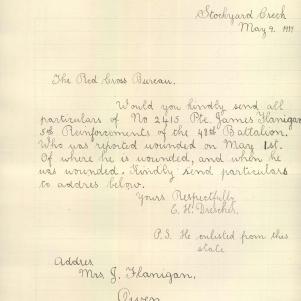 Stockyard Creek
May 9. 1917
The Red Cross Bureau.
Would you kindly send all
particulars of No 2415 Pte. James Flanigan
5th Reinforcements of the 48th Battalion.
Who was reported wounded on May 1st.
Of where he is wounded, and when he
was wounded. Kindly send particulars
to address below.
Yours Respectfully
E. H. Drescher.
P.S. He enlisted from this
state
Address
Mrs J. Flanigan,
Owen